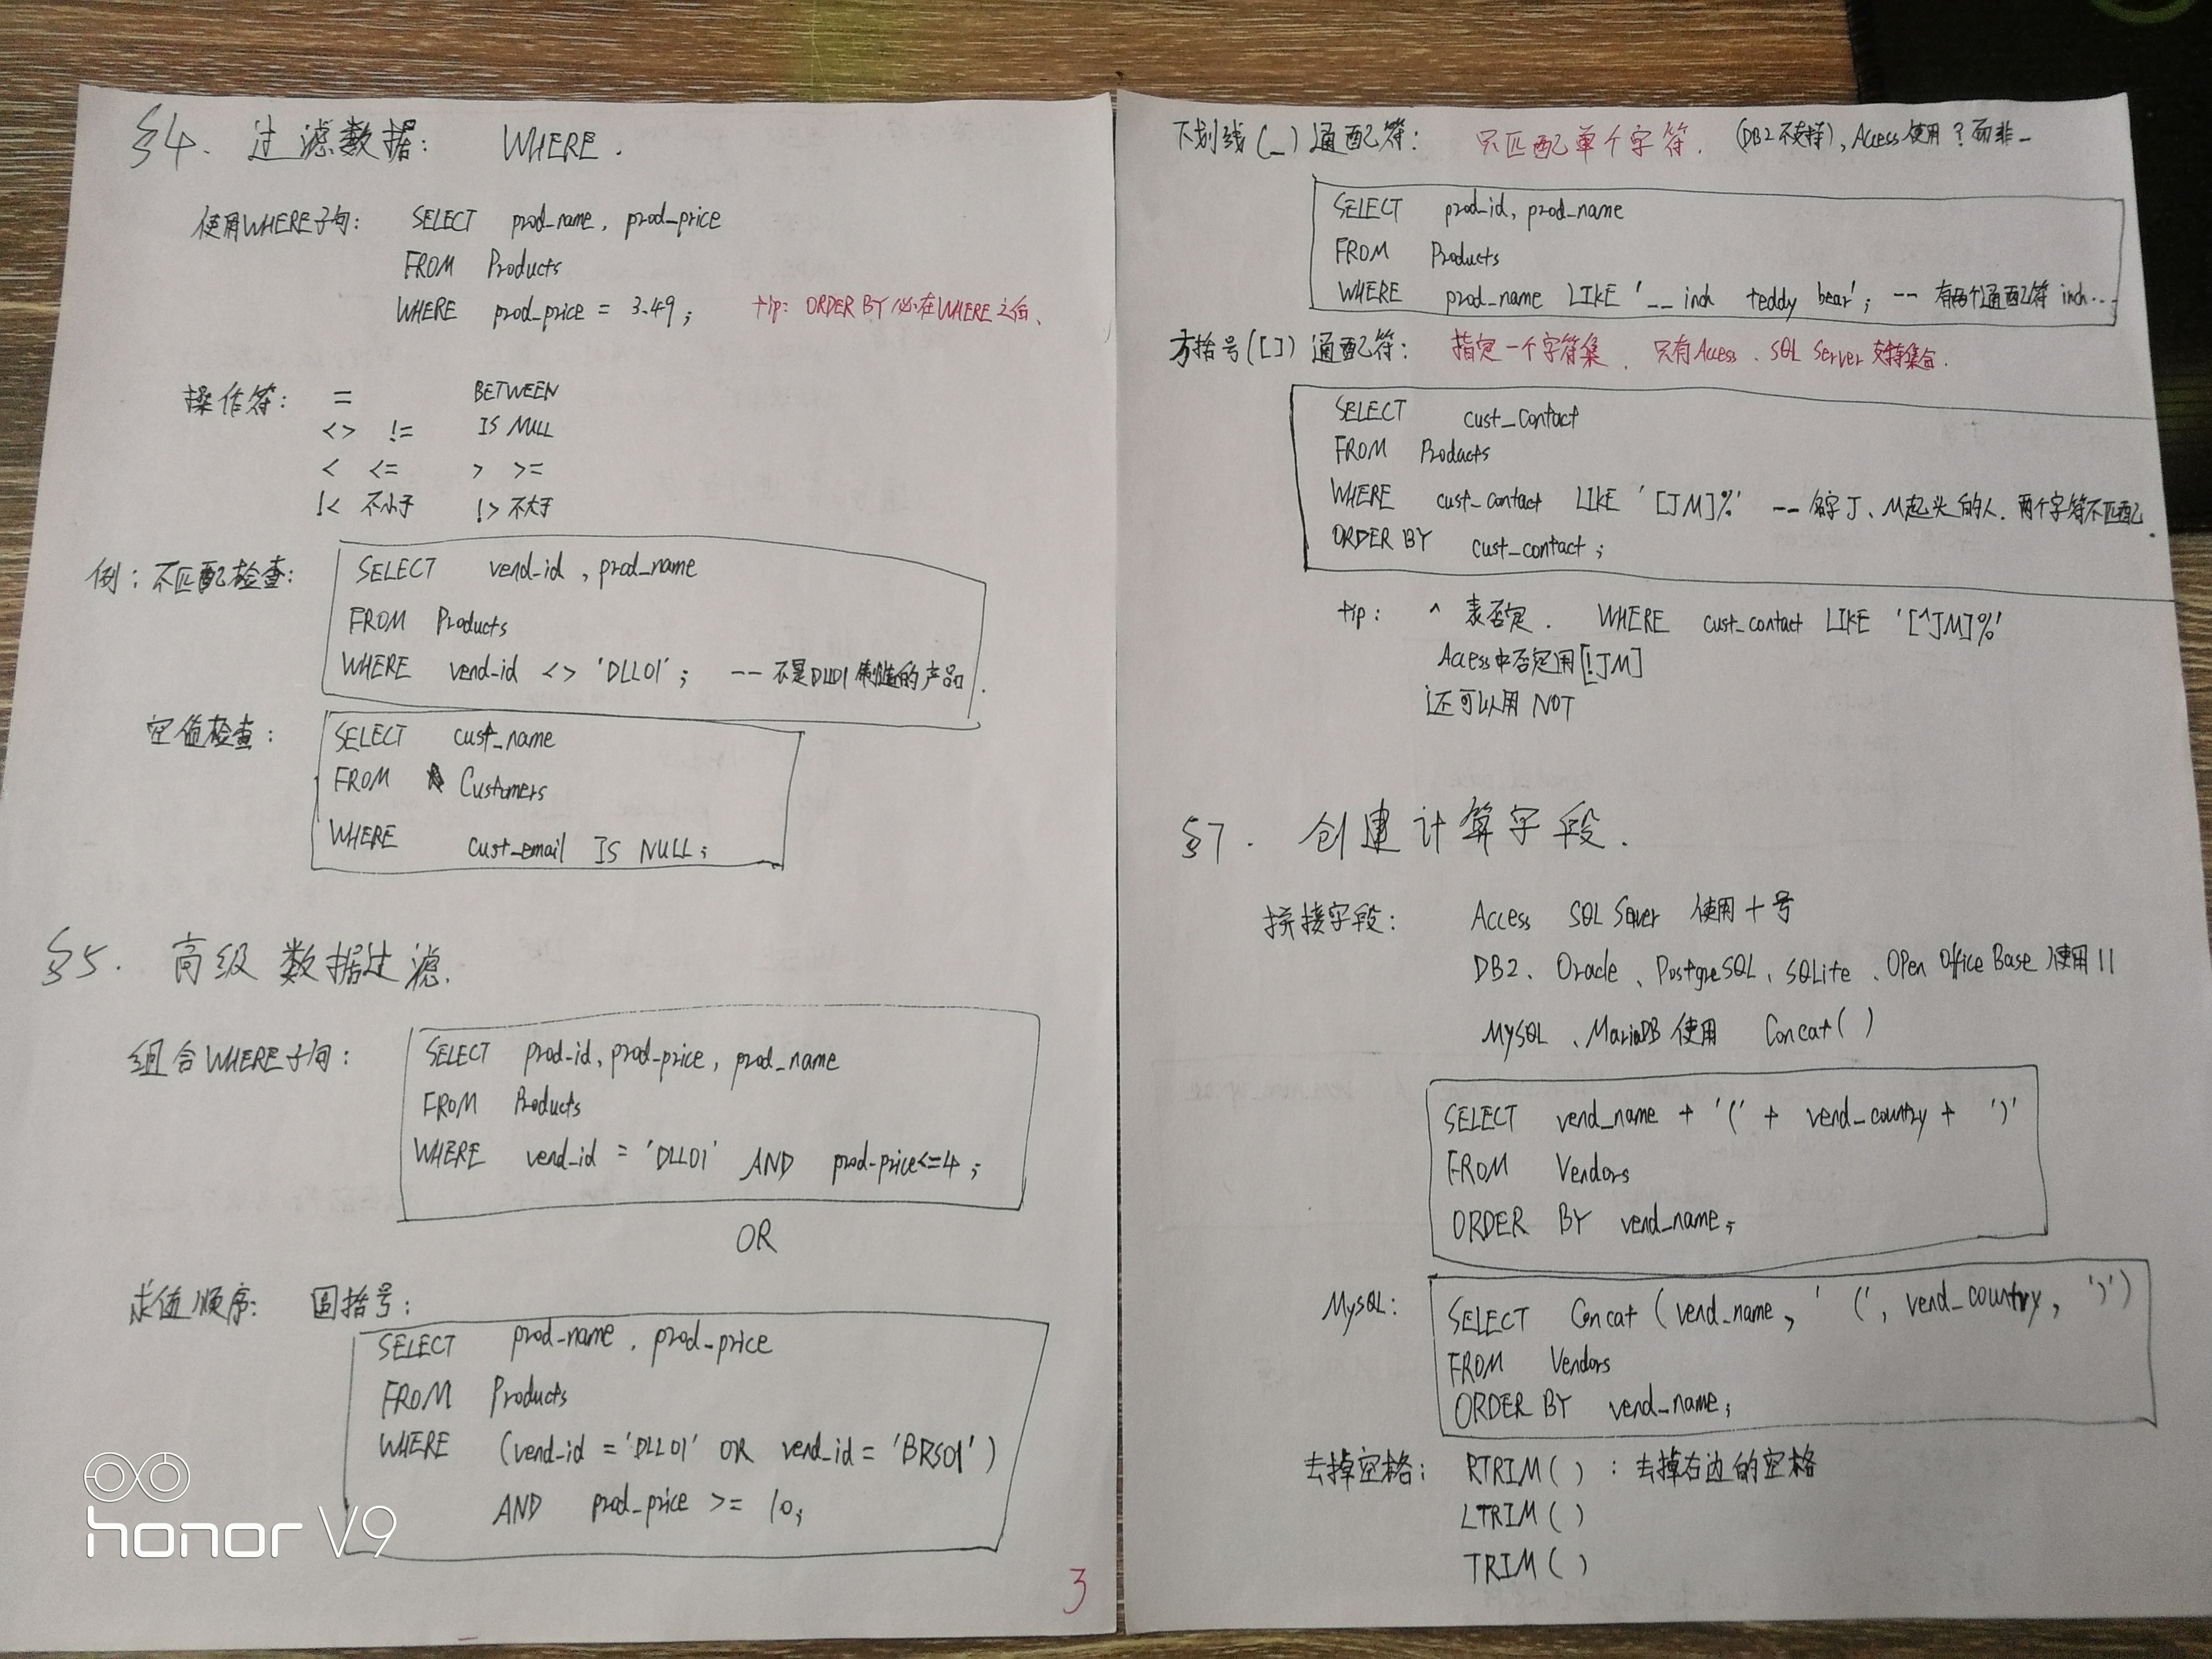 §4. 过滤数据： WHERE.
使用WHERE子句： SELECT prod_name, prod_price
FROM Products
WHERE prod_price = 3.49; tip: ORDER BY 必在WHERE之后、
操作符： = BETWEEN
<> != IS NULL
< <= > >=
!< 不小于 !> 不大于
例：不匹配检查：
SELECT vend_id, prod_name
FROM Products
WHERE vend_id <> 'DLL01'; -- 不是DLL01制造的产品.
空值检查：
SELECT cust_name
FROM Customers
WHERE cust_email IS NULL;
§5. 高级数据过滤.
组合WHERE子句：
SELECT prod_id, prod_price, prod_name
FROM Products
WHERE vend_id = 'DLL01' AND prod_price<=4;
OR
求值顺序： 圆括号：
SELECT prod_name, prod_price
FROM Products
WHERE (vend_id = 'DLL01' OR vend_id = 'BRS01')
AND prod_price >= 10;
3
honor V9
下划线(_)通配符： 只匹配单个字符. (DB2不支持), Access使用?而非_
SELECT prod_id, prod_name
FROM Products
WHERE prod_name LIKE '__ inch teddy bear'; -- 有两个通配符 inch...
方括号([])通配符： 指定一个字符集. 只有Access、SQL Server支持集合.
SELECT cust_contact
FROM Products
WHERE cust_contact LIKE '[JM]%' -- 名字J、M起头的人. 两个字符不匹配.
ORDER BY cust_contact;
tip: ^ 表否定. WHERE cust_contact LIKE '[^JM]%'
Access中否定用[!JM]
还可以用 NOT
§7. 创建计算字段.
拼接字段： Access SQL Server 使用+号
DB2、Oracle、PostgreSQL、SQLite、Open Office Base 使用||
MySQL、MariaDB 使用 Concat()
SELECT vend_name + '(' + vend_country + ')'
FROM Vendors
ORDER BY vend_name;
MySQL:
SELECT Concat(vend_name, ' (', vend_country, ')')
FROM Vendors
ORDER BY vend_name;
去掉空格： RTRIM()：去掉右边的空格
LTRIM()
TRIM()